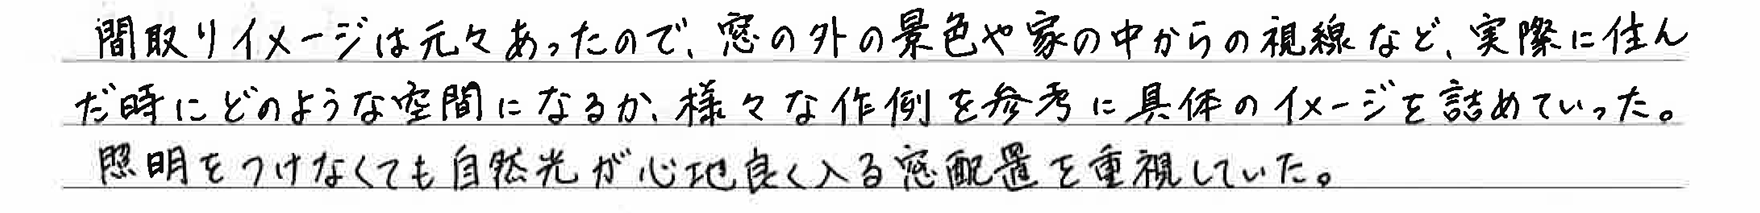 間取りイメージは元々あったので、窓の外の景色や家の中からの視線など、実際に住ん
だ時にどのような空間になるか、様々な作例を参考に具体のイメージを詰めていった。
照明をつけなくても自然光が心地良く入る窓配置を重視していた。